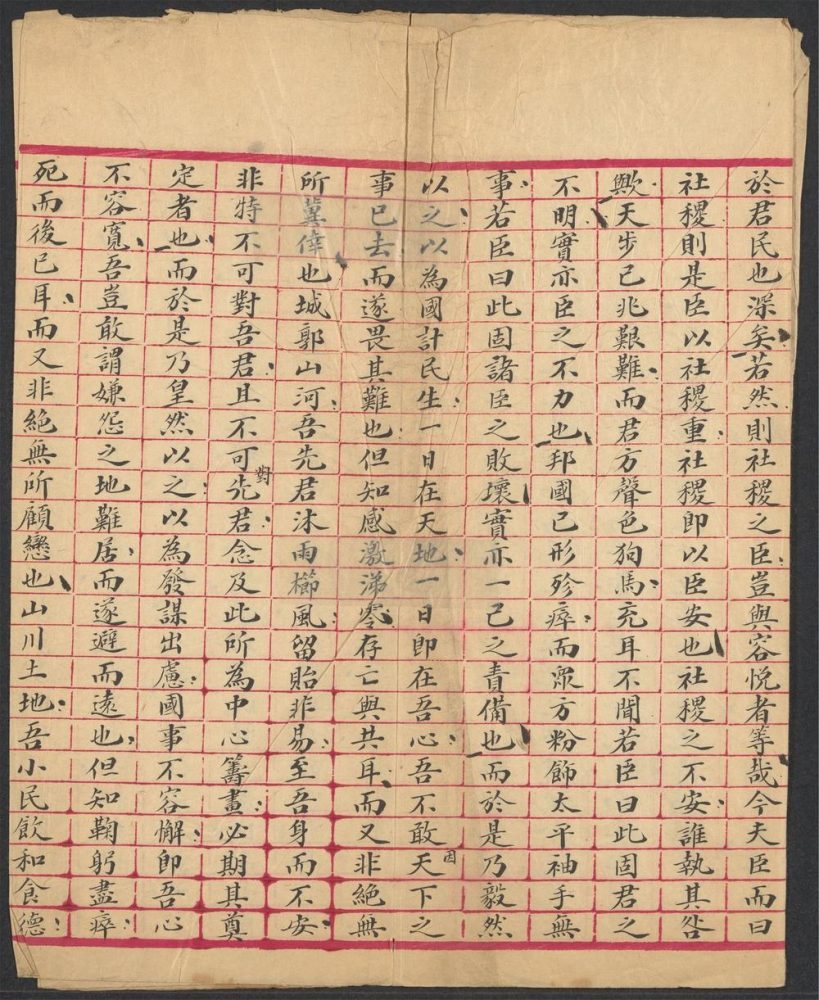 於君民也深矣若然則社稷之臣豈與容悅者等哉今夫臣而曰
社稷則是臣以社稷重社稷即以臣安也社稷之不安誰執其咎
歟天步已兆艱難而君方聲色狗馬充耳不聞若臣曰此固君之
不明實亦臣之不力也邦國已形殄瘁而眾方粉飾太平袖手無
事若臣曰此固諸臣之敗壞實亦一己之責備也而於是乃毅然
以之以為國計民生一日在天地一日即在吾心吾不敢因天下之
事已去而遂畏其難也但知感激涕零存亡與共耳而又非絕無
所冀倖也城郭山河吾先君沐雨櫛風留貽非易至吾身而不安
非特不可對吾君且不可對先君念及此所為中心籌畫必期其奠
定者也而於是乃皇然以之以為發謀出慮國事不容懈即吾心
不容寬吾豈敢謂嫌怨之地難居而遂避而遠也但知鞠躬盡瘁
死而後已耳而又非絕無所顧戀也山川土地吾小民飲和食德